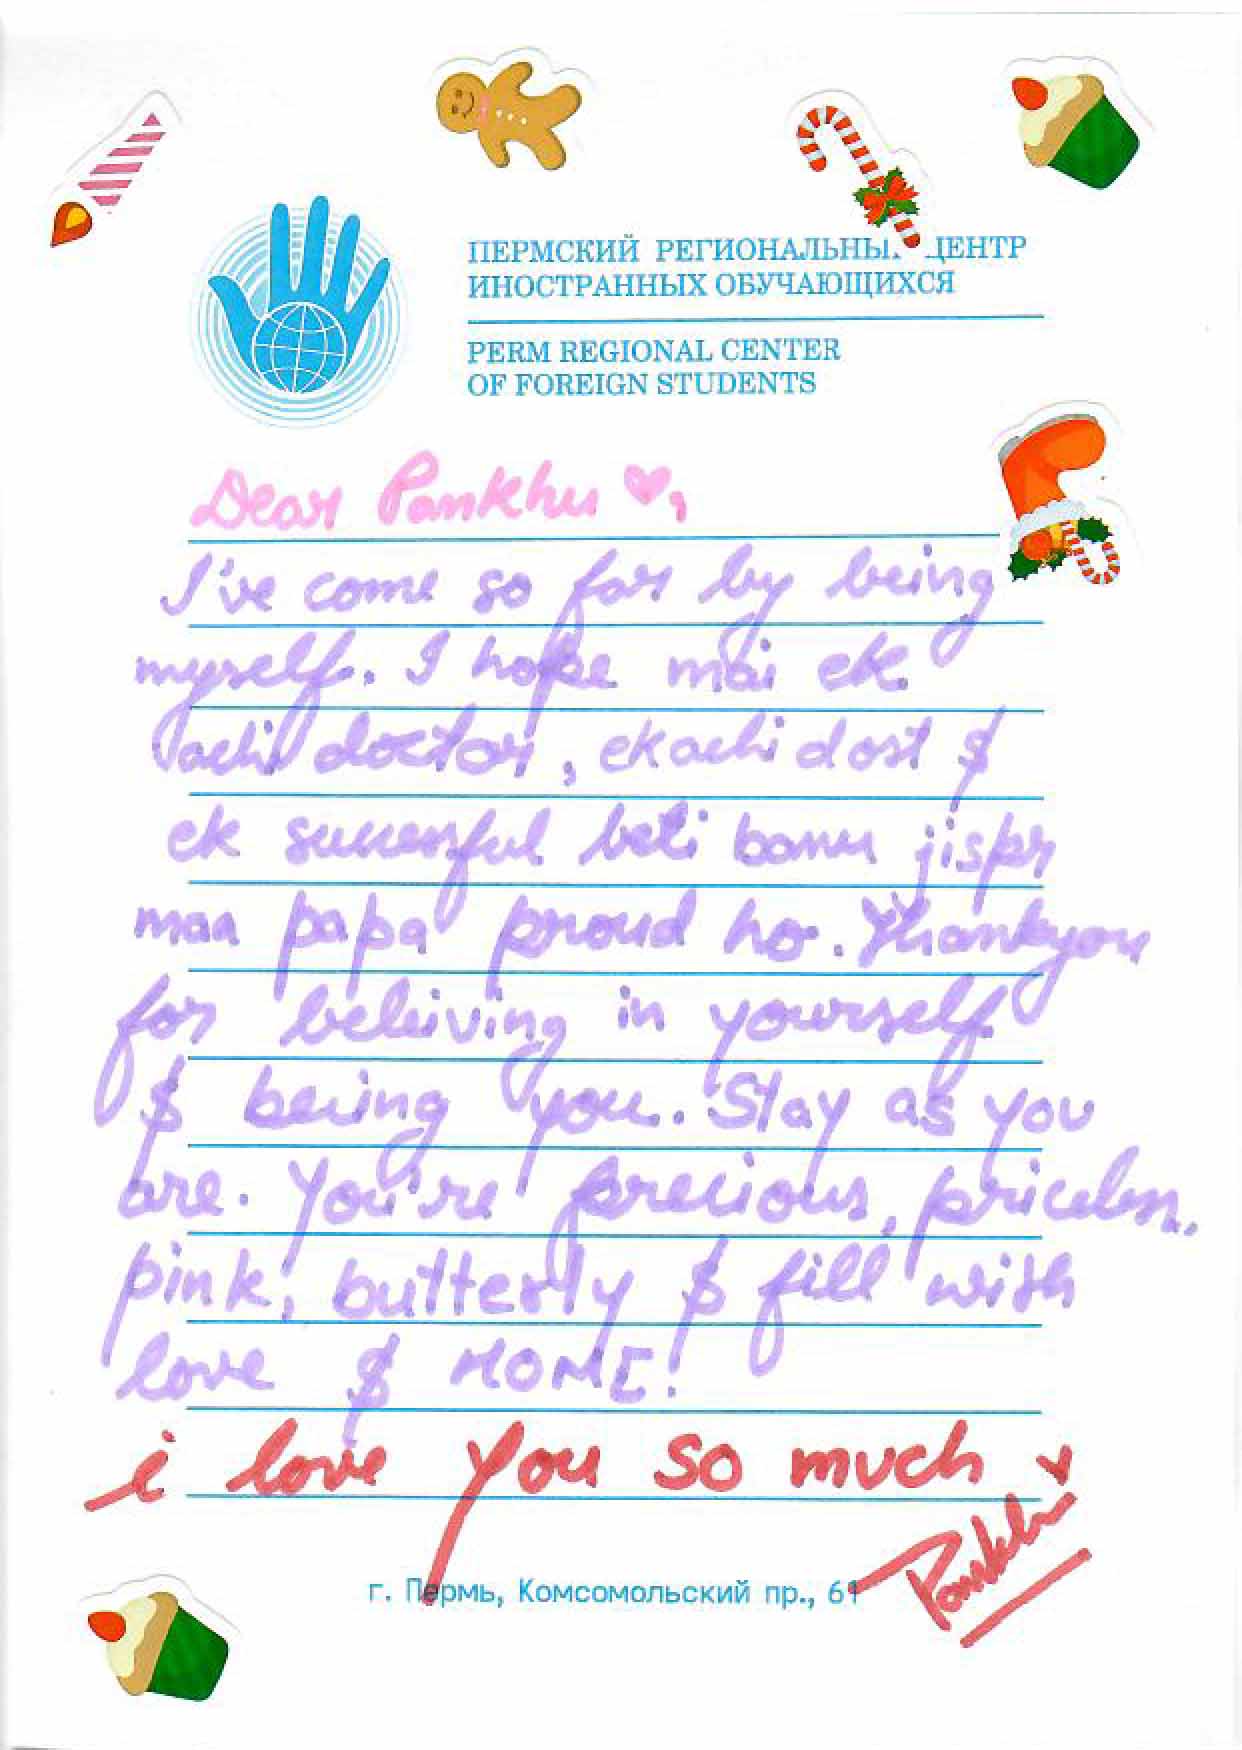 ПЕРМСКИЙ РЕГИОНАЛЬНЫ ЦЕНТР
ИНОСТРАННЫХ ОБУЧАЮЩИХСЯ
PERM REGIONAL CENTER
OF FOREIGN STUDENTS
Dear Pankhu ♥,
I've come so far by being
myself. I hope mai ek
achi doctor, ek achi dost &
ek successful beti banu jispr
maa papa proud ho. Thankyou
for beleiving in yourself
& being you. Stay as you
are. You're precious, priceless,
pink, butterfly & fill with
love & HOME!
i love you so much
Pankhu
г. Пермь, Комсомольский пр., 61